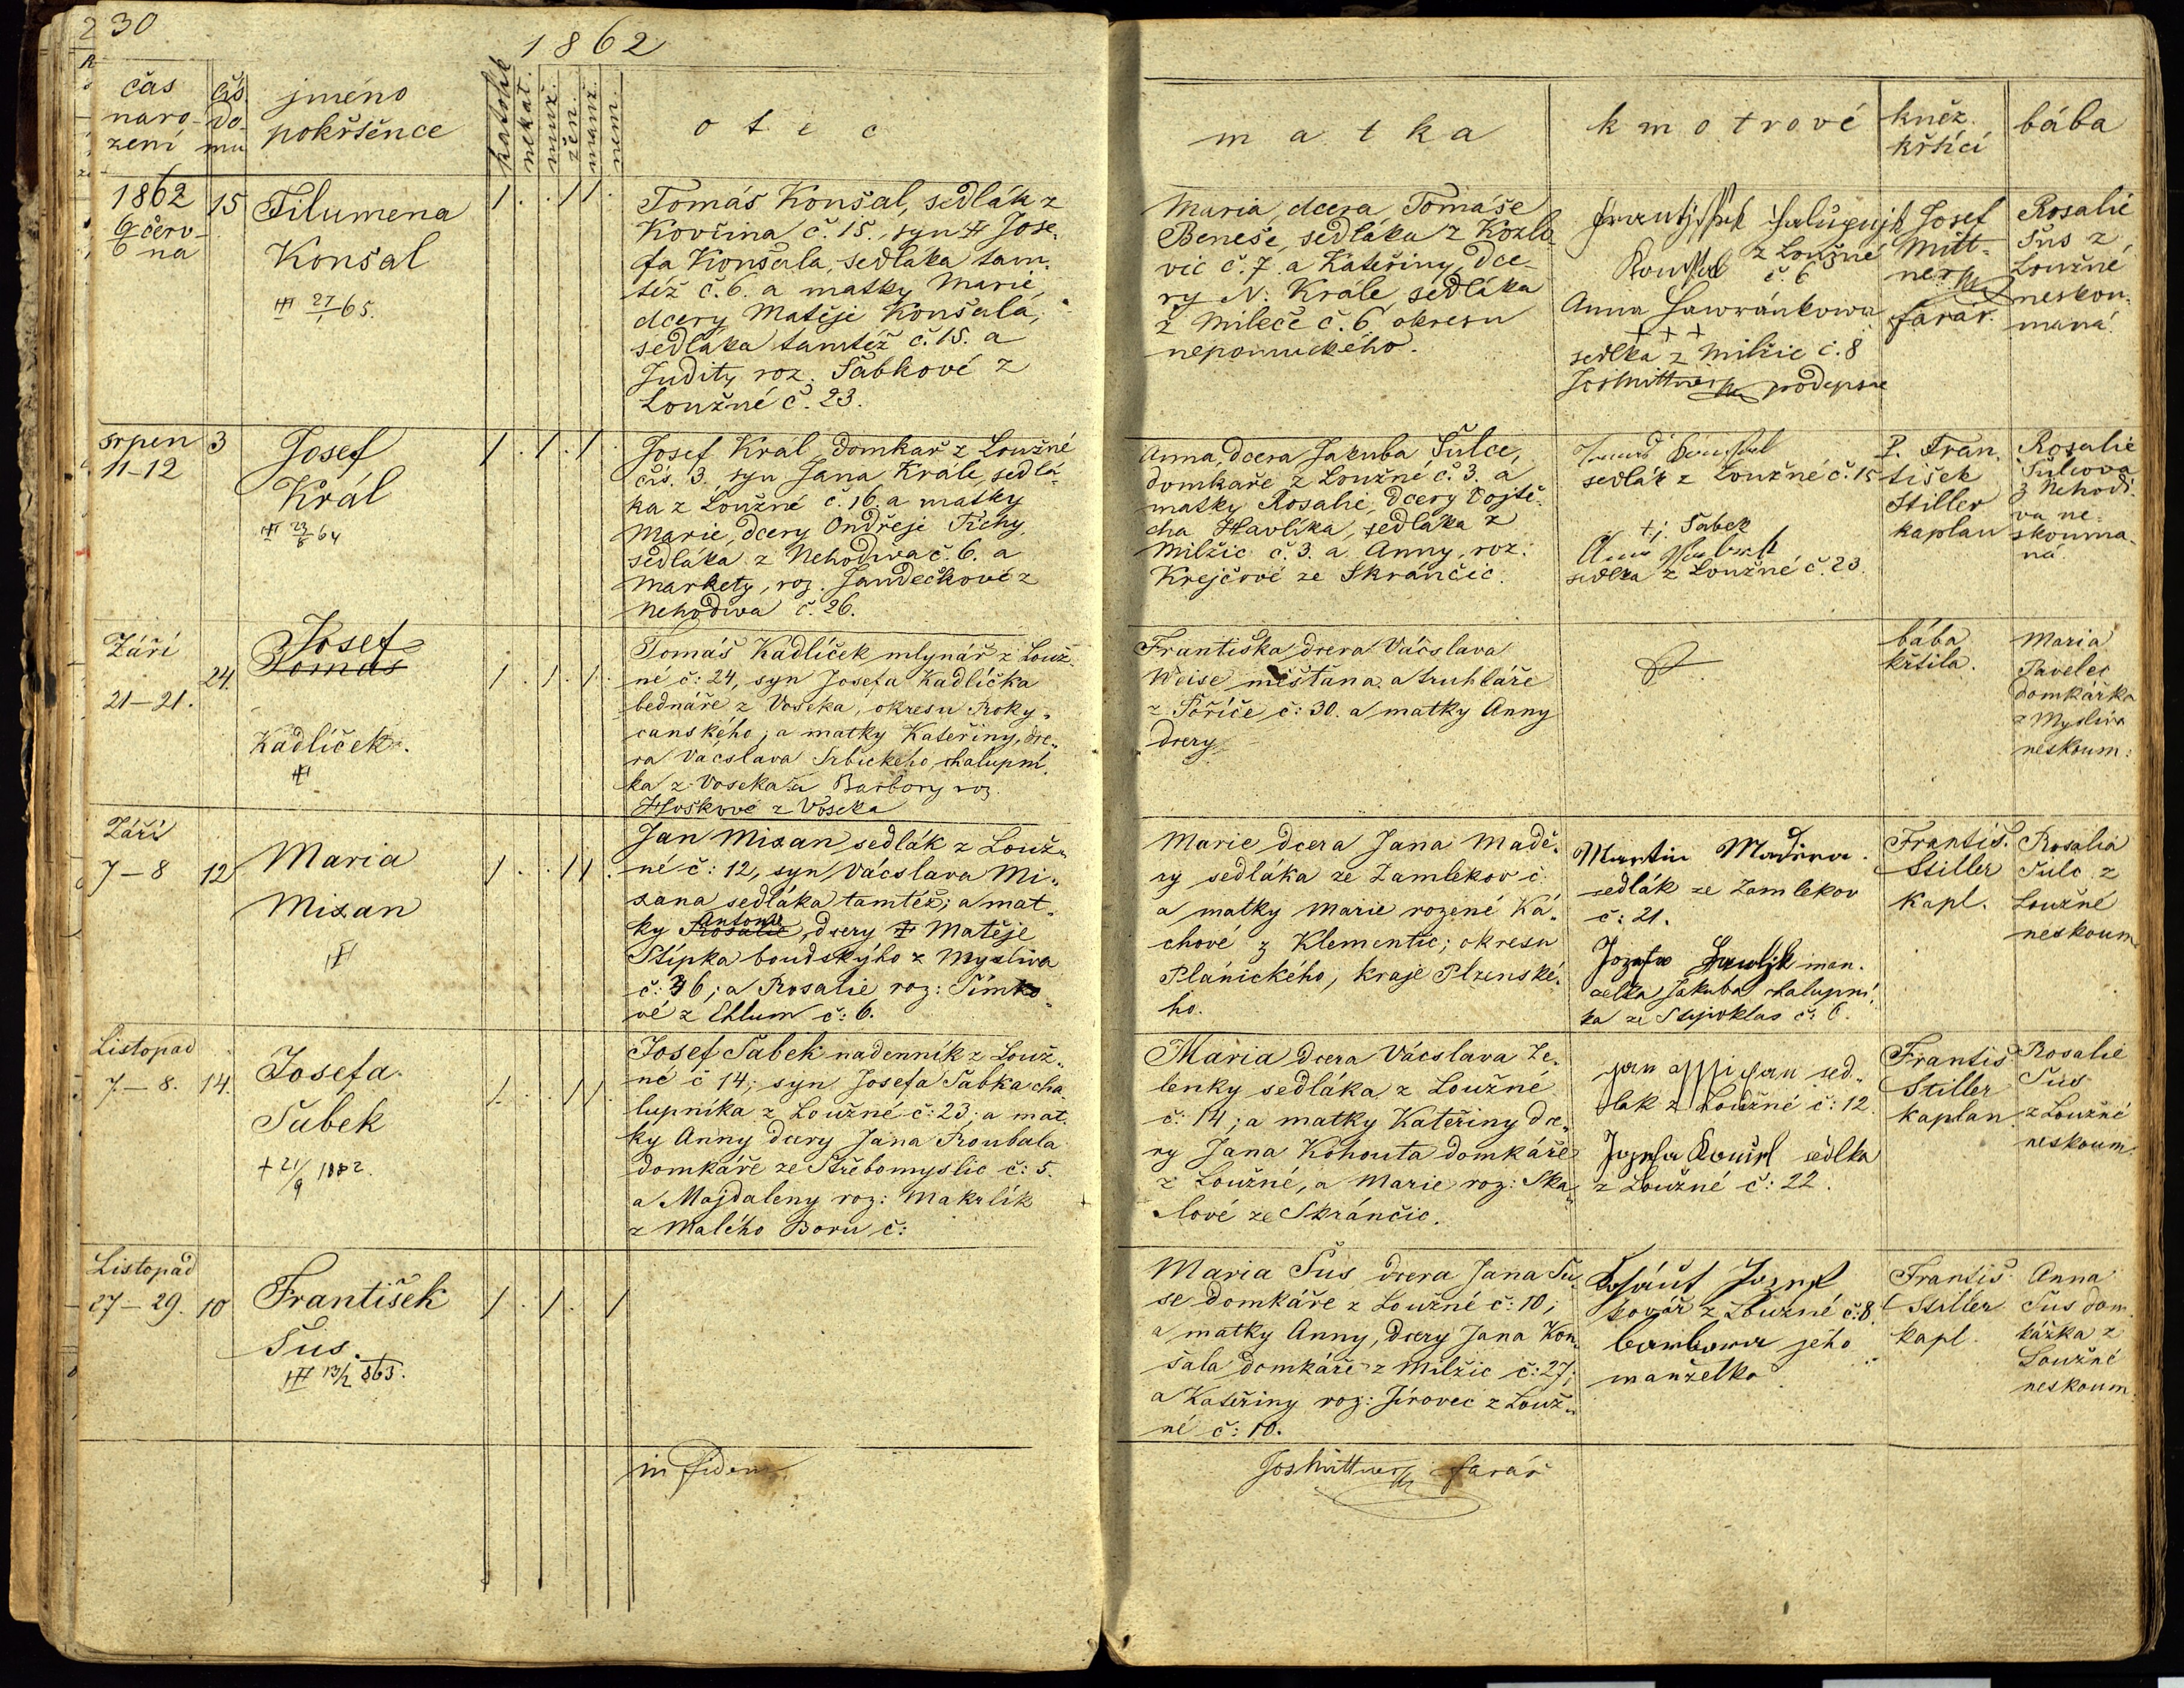 230
1862
čas
naro-
zení
čís.
do-
mu
jméno
pokřtěnce
katolík
nekat.
muž.
žen.
manž.
nem.
otec
matka
kmotrové
kněz
křtící
bába
1862
6 červ-
6 na
15
Filumena
Konšal
27/1 65.
1 . . 1 1 .
Tomáš Konšal, sedlák z
Kovčína č. 15., syn † Jose-
fa Konšala, sedláka tam-
též č. 6. a matky Marie,
dcery Matěje Konšala,
sedláka tamtéž č. 15. a
Judity, roz. Šabkové z
Loužné č. 23.
Maria, dcera Tomáše
Beneše, sedláka z Kozlo-
vic č. 7. a Kateřiny, dce-
ry N. Krále, sedláka
z Mileče č. 6, okresu
nepomuckého.
z Loužné
č. 6
Anna Hawránkowa
+ + +
sedlka z Milžic č. 8
Jos Mittner podepsae
Josef
Mitt-
ner
farář.
Rosalie
Šus z
Loužné
neskou-
maná.
srpen
11-12
3
Josef
Král
64
1 . 1 . 1 .
Josef Král, domkář z Loužné
čís. 3. syn Jana Krále, sedlá-
ka z Loužné č. 16. a matky
Marie, dcery Ondřeje Tichý,
sedláka z Nehodiva č. 6. a
Markety, roz. Jandečkové z
Nehodiva č. 26.
Anna, dcera Jakuba Šulce,
domkaře z Loužné č. 3. a
matky Rosalie, dcery Vojtě-
cha Havlíka, sedláka z
Milžic č. 3. a Anny, roz.
Krejčové ze Skránčic.
sedlák z Loužné č. 15
t. j. Šabek
sedlka z Loužné č. 23.
P. Fran-
tišek
Stiller
kaplan
Rosalie
Šulcova
z Nehodi-
va ne-
skouma-
ná
Září
21-21.
24.
Josef
Tomáš
Kadlíček.
1 . 1 . 1 .
Tomáš Kadlíček mlynář z Louž-
né č: 24, syn Josefa Kadlíčka
bednáře z Voseka, okresu Roky-
canského, a matky Kateřiny, dce-
ra Vácslava Srbického, chalupní-
ka z Voseka a Barbory roz.
Hoškové z Voseka
Františka dcera Vácslava
Weise měšťana a truhláře
z Poříče č: 30. a matky Anny
dcery
bába
křtila.
Maria
Pavelec
domkářka
z Myslíva
neskoum:
Září
7-8
12
Maria
Mixan
1 . . 1 1 .
Jan Mixan sedlák z Louž-
né č: 12, syn Vácslava Mi-
xana sedláka tamtéž; a mat-
Antonie
ky Rosalie, dcery † Matěje
Stípka boudskýho z Myslíva
č: 36; a Rosalie roz: Šimko-
vé z Chlum č: 6.
Marie dcera Jana Madě-
ry sedláka ze Zamlekov č.
a matky Marie rozené Ká-
chové z Klementic; okresu
Plánického, kraje Plzenské-
ho.
Martin Maděra.
sedlák ze Zamlekov
č: 21.
Jozefa Hawljk man-
želka Jakuba chalupní-
ka ze Stipoklas č: 6.
Františ.
Stiller
Kapl.
Rosalia
Šulc z
Loužné
neskoum
Listopad
7-8.
14.
Josefa
Šabek
+ 21/9 1882.
1 . . 1 1 .
Josef Šabek nadenník z Louž-
né č 14; syn Josefa Šabka cha-
lupníka z Loužné č: 23; a mat-
ky Anny dcery Jana Roubala
domkáře ze Střebomyslic č: 5.
a Majdaleny roz: Makrlík
z Malého Boru č:
Maria dcera Vácslava Ze-
lenky sedláka z Loužné
č: 14; a matky Kateřiny dce-
ry Jana Kohouta domkáře
z Loužné, a Marie roz: Ska-
lové ze Skránčic.
Jan Missan sed-
lák z Loužné č: 12.
Jozefa Konšel sedlka
z Loužné č: 22.
Františ
Stiller
kaplan.
Rosalie
Šus
z Loužné
neskoum.
Listopad
27-29.
10
František
Šus.
13/2 863.
1 . 1 . 1
Maria Šus dcera Jana Šu-
se domkáře z Loužné č: 10;
a matky Anny, dcery Jana Kon-
šala domkáře z Milžic č: 27;
a Kateřiny roz: Jírovec z Louž-
né č: 10.
Jozef
kovář z Loužné č: 8.
barbora jeho
manželka
Františ
Stiller
kapl.
Anna
Šus dom-
kářka z
Loužné
neskoum
in fidem
Jos Mittner farář